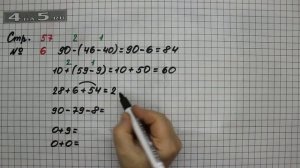 4 5 .NET
Стр. 57 2 1
№ 6 90-(46-40)=90-6=84
2 1
10+(59-9)=10+50=60
28+6+54=2
90-79-8=
0+9=
0+0=